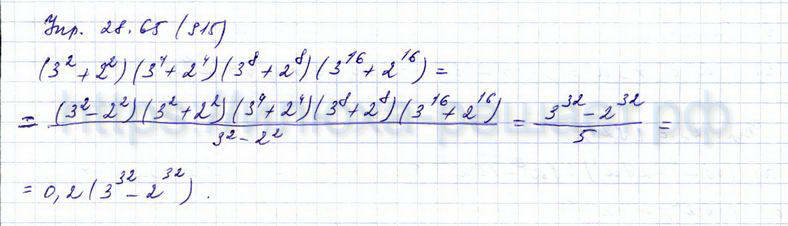 Упр. 28.65 (915)
(3² + 2²)(3⁴ + 2⁴)(3⁸ + 2⁸)(3¹⁶ + 2¹⁶) =
= (3² − 2²)(3² + 2²)(3⁴ + 2⁴)(3⁸ + 2⁸)(3¹⁶ + 2¹⁶) / 3² − 2² = 3³² − 2³² / 5 =
= 0,2(3³² − 2³²).